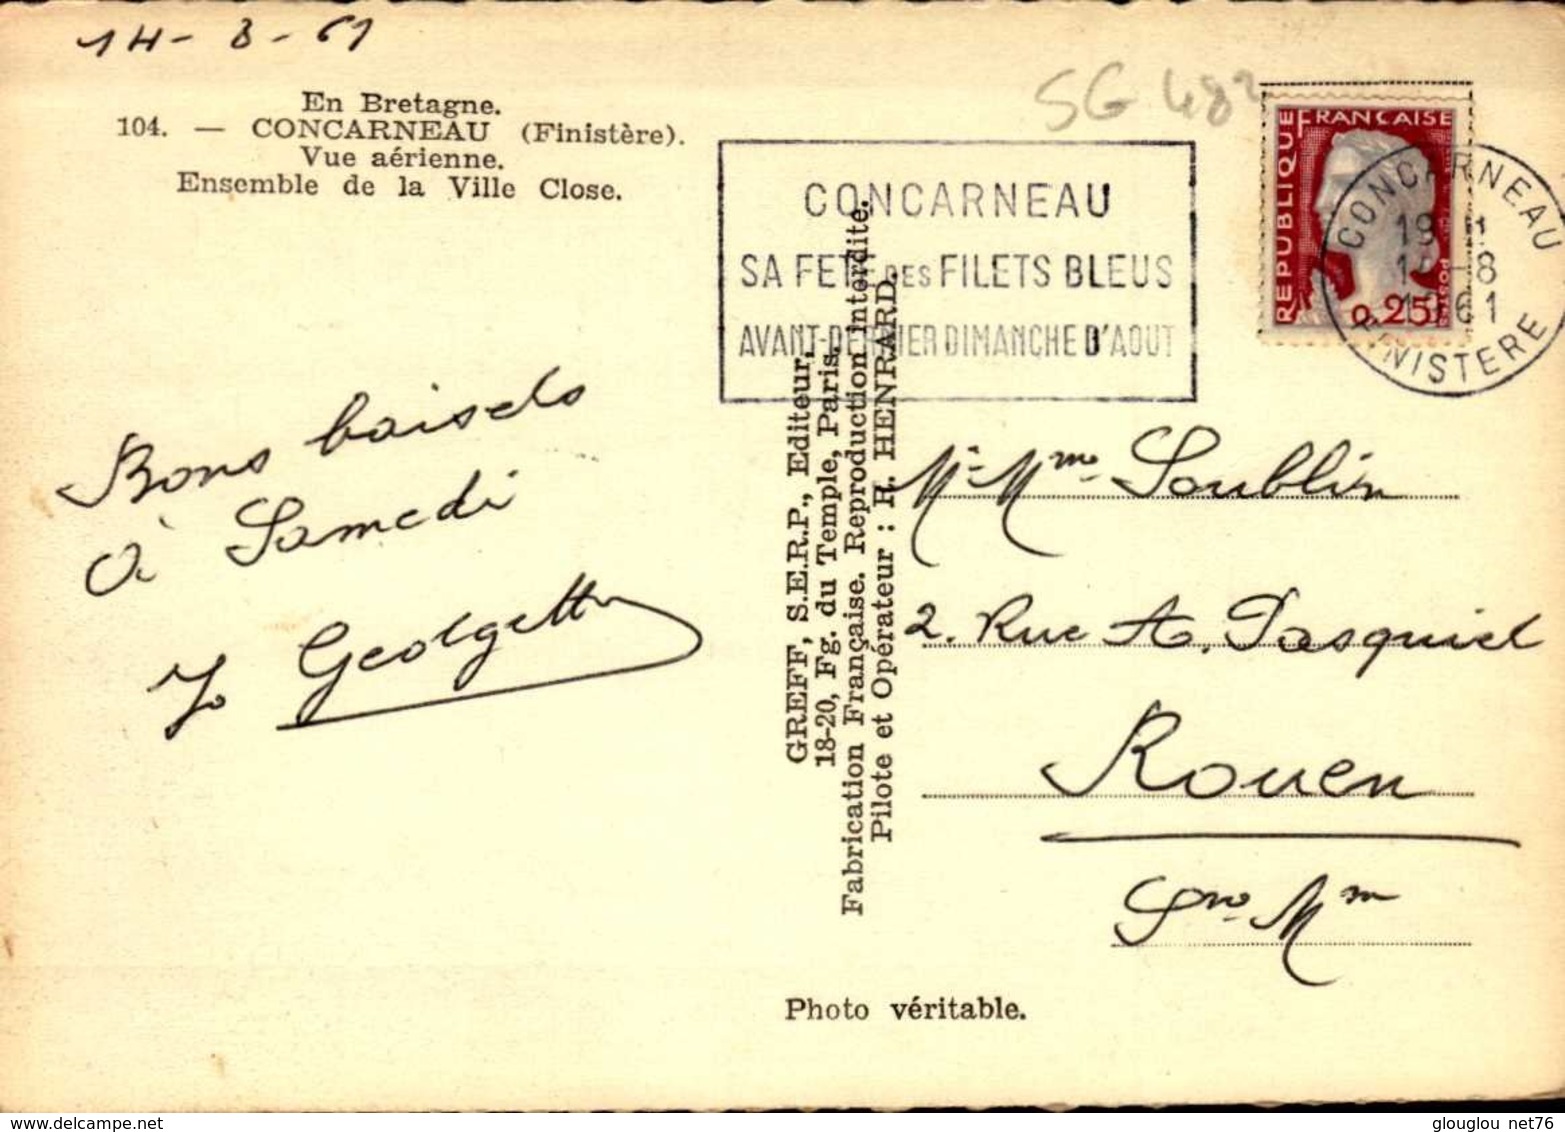 14-8-61
En Bretagne.
104. — CONCARNEAU (Finistère).
Vue aérienne.
Ensemble de la Ville Close.
SG 482
CONCARNEAU
SA FETE DES FILETS BLEUS
AVANT-DERNIER DIMANCHE D'AOUT
REPUBLIQUE FRANÇAISE
POSTES
0,25
CONCARNEAU
14-8
1961
FINISTERE
Bons baisers
à Samedi
Georgette
GREFF, S.E.R.P., Editeur,
18-20, Fg. du Temple, Paris.
Fabrication Française. Reproduction interdite.
Pilote et Opérateur : R. HENRARD.
Mr Mme Soublin
2. Rue A. Pasquiel
Rouen
Sne Mme
Photo véritable.
glouglou net76